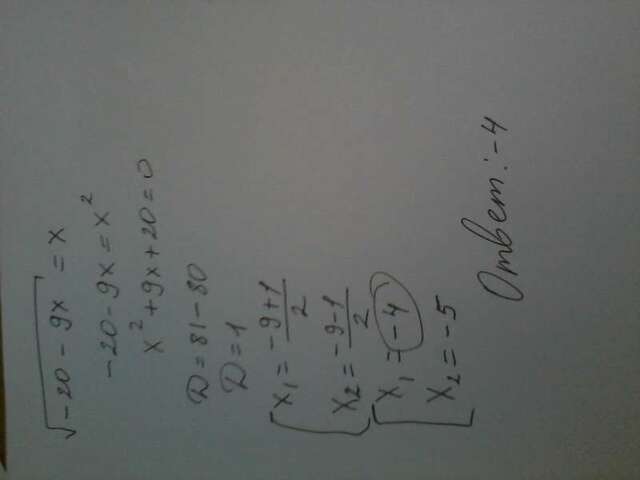 √-20-9x = x
-20-9x = x²
x²+9x+20=0
D=81-80
D=1
x₁ = -9+1/2
x₂ = -9-1/2
x₁ = -4
x₂ = -5
Ответ: -4